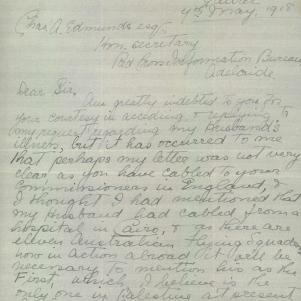 4th May, 1918
Chas. A. Edmunds esq
Hon. Secretary
Red Cross Information Bureau
Adelaide
Dear Sir,
Am greatly indebted to you for
your courtesy in acceding & replying to
my request regarding my Husband's
illness, but it has occurred to me
that perhaps my letter was not very
clear as you have cabled to your
Commissioners in England, &
I thought I had mentioned that
my Husband had cabled from a
hospital in Cairo, & as there are
eleven Australian Flying Squads
now in Action abroad it will be
necessary to mention his as the
First, which I believe is the
only one in Palestine at present